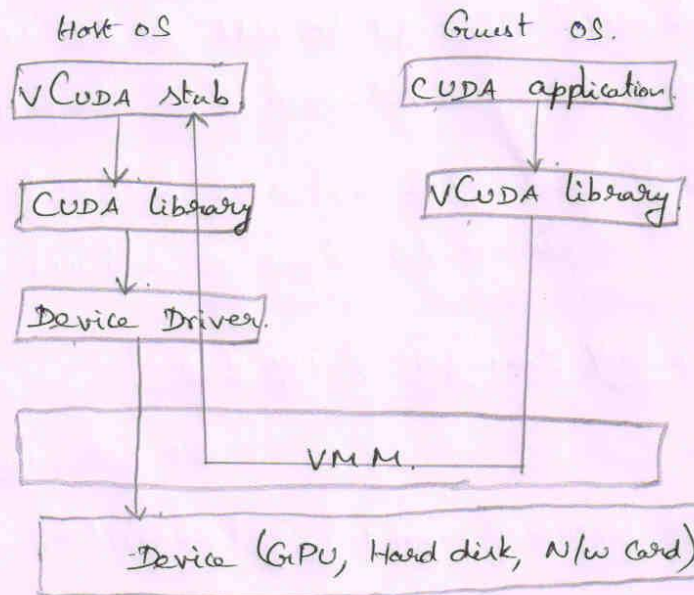 Host OS
Guest OS.
VCUDA stub
CUDA application.
CUDA library
VCUDA library.
Device Driver.
VMM.
Device (GPU, Hard disk, N/w Card)